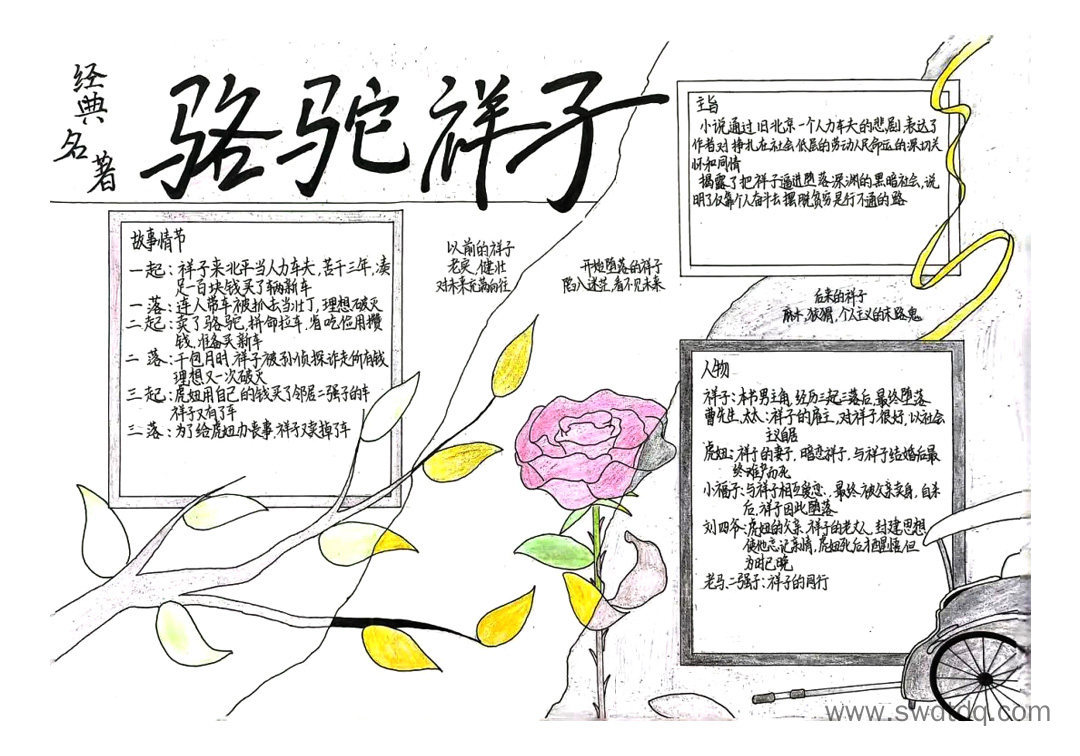 经典名著
骆驼祥子
主旨
小说通过旧北京一个人力车夫的悲剧,表达了
作者对挣扎在社会低层的劳动人民命运的深切关
怀和同情
揭露了把祥子逼进堕落深渊的黑暗社会,说
明了仅靠个人奋斗去摆脱贫穷是行不通的路
故事情节
一起:祥子来北平当人力车夫,苦干三年,凑
足一百块钱买了辆新车
一落:连人带车被抓去当壮丁,理想破灭
二起:卖了骆驼,拼命拉车,省吃俭用攒
钱,准备买新车
二落:干包月时,祥子被孙侦探诈走所有钱
理想又一次破灭
三起:虎妞用自己的钱买了邻居二强子的车
祥子又有了车
三落:为了给虎妞办丧事,祥子又卖掉了车
以前的祥子
老实,健壮
对未来充满向往
开始堕落的祥子
陷入迷茫,看不见未来
后来的祥子
麻木,狡猾,个人主义的末路鬼
人物
祥子:本书男主角,经历三起三落后,最终堕落
曹先生,太太:祥子的雇主,对祥子很好,以社会
主义自居
虎妞:祥子的妻子,暗恋祥子,与祥子结婚后最
终难产而死
小福子:与祥子相互爱恋,最终被父亲卖身,自杀
后,祥子因此堕落
刘四爷:虎妞的父亲,祥子的老丈人,封建思想
使他忘记亲情,虎妞死后才醒悟,但
为时已晚
老马、二强子:祥子的同行
www.swdtdq.com